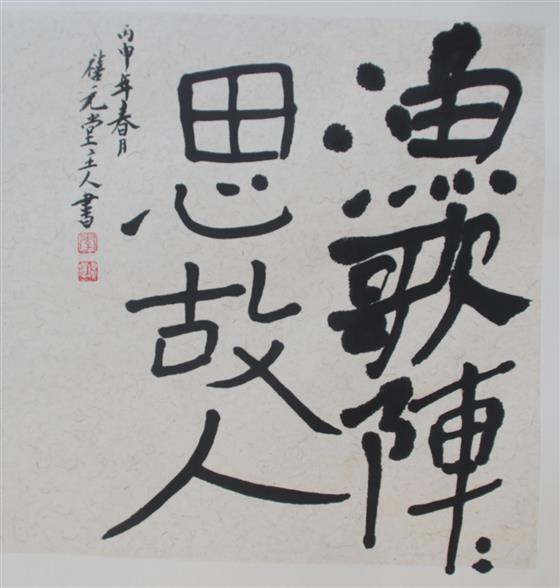 漁歌陣：
思故人
丙申年春月
禧元堂主人書